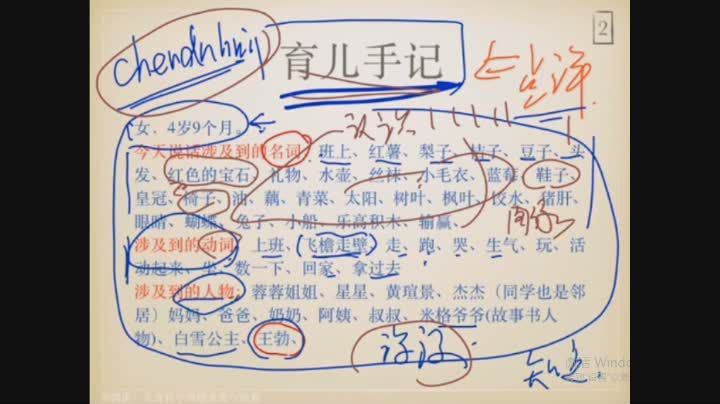 2
育儿手记
女，4岁9个月。
今天说话涉及到的名词：班上、红薯、梨子、桔子、豆子、头
发、红色的宝石、礼物、水壶、丝袜、小毛衣、蓝莓、鞋子、
皇冠、椅子、油、藕、青菜、太阳、树叶、枫叶、饺水、猪肝、
眼睛、蝴蝶、兔子、小船、乐高积木、输赢、
涉及到的动词：上班、飞檐走壁、走、跑、哭、生气、玩、活
动起来、坐、数一下、回家、拿过去
涉及到的人物：蓉蓉姐姐、星星、黄瑄景、杰杰（同学也是邻
居）妈妈、爸爸、奶奶、阿姨、叔叔、米格爷爷(故事书人
物)、白雪公主、王勃、
激活 Windo